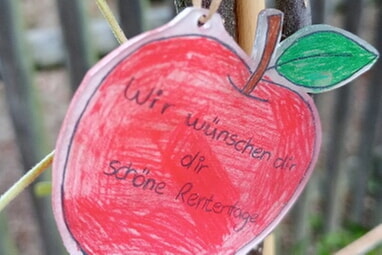 Wir wünschen dir
dir
schöne Rententage